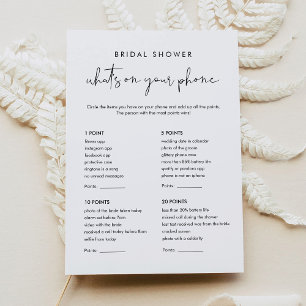 BRIDAL SHOWER
what's on your phone
Circle the items you have on your phone and add up all the points.
The person with the most points wins!
1 POINT
fitness app
instagram app
facebook app
protective case
ringtone is a song
no unread messages
Points:
5 POINTS
wedding date in calendar
photo of the groom
glittery phone case
more than 85% battery life
spotify or pandora app
phone is not an iphone
Points:
10 POINTS
photo of the bride taken today
alarm set before 7am
video with the bride
received a call today before 8am
selfie from today
Points:
20 POINTS
less than 20% battery life
missed call during the shower
last text received was from the bride
cracked screen
photo with a celebrity
Points: